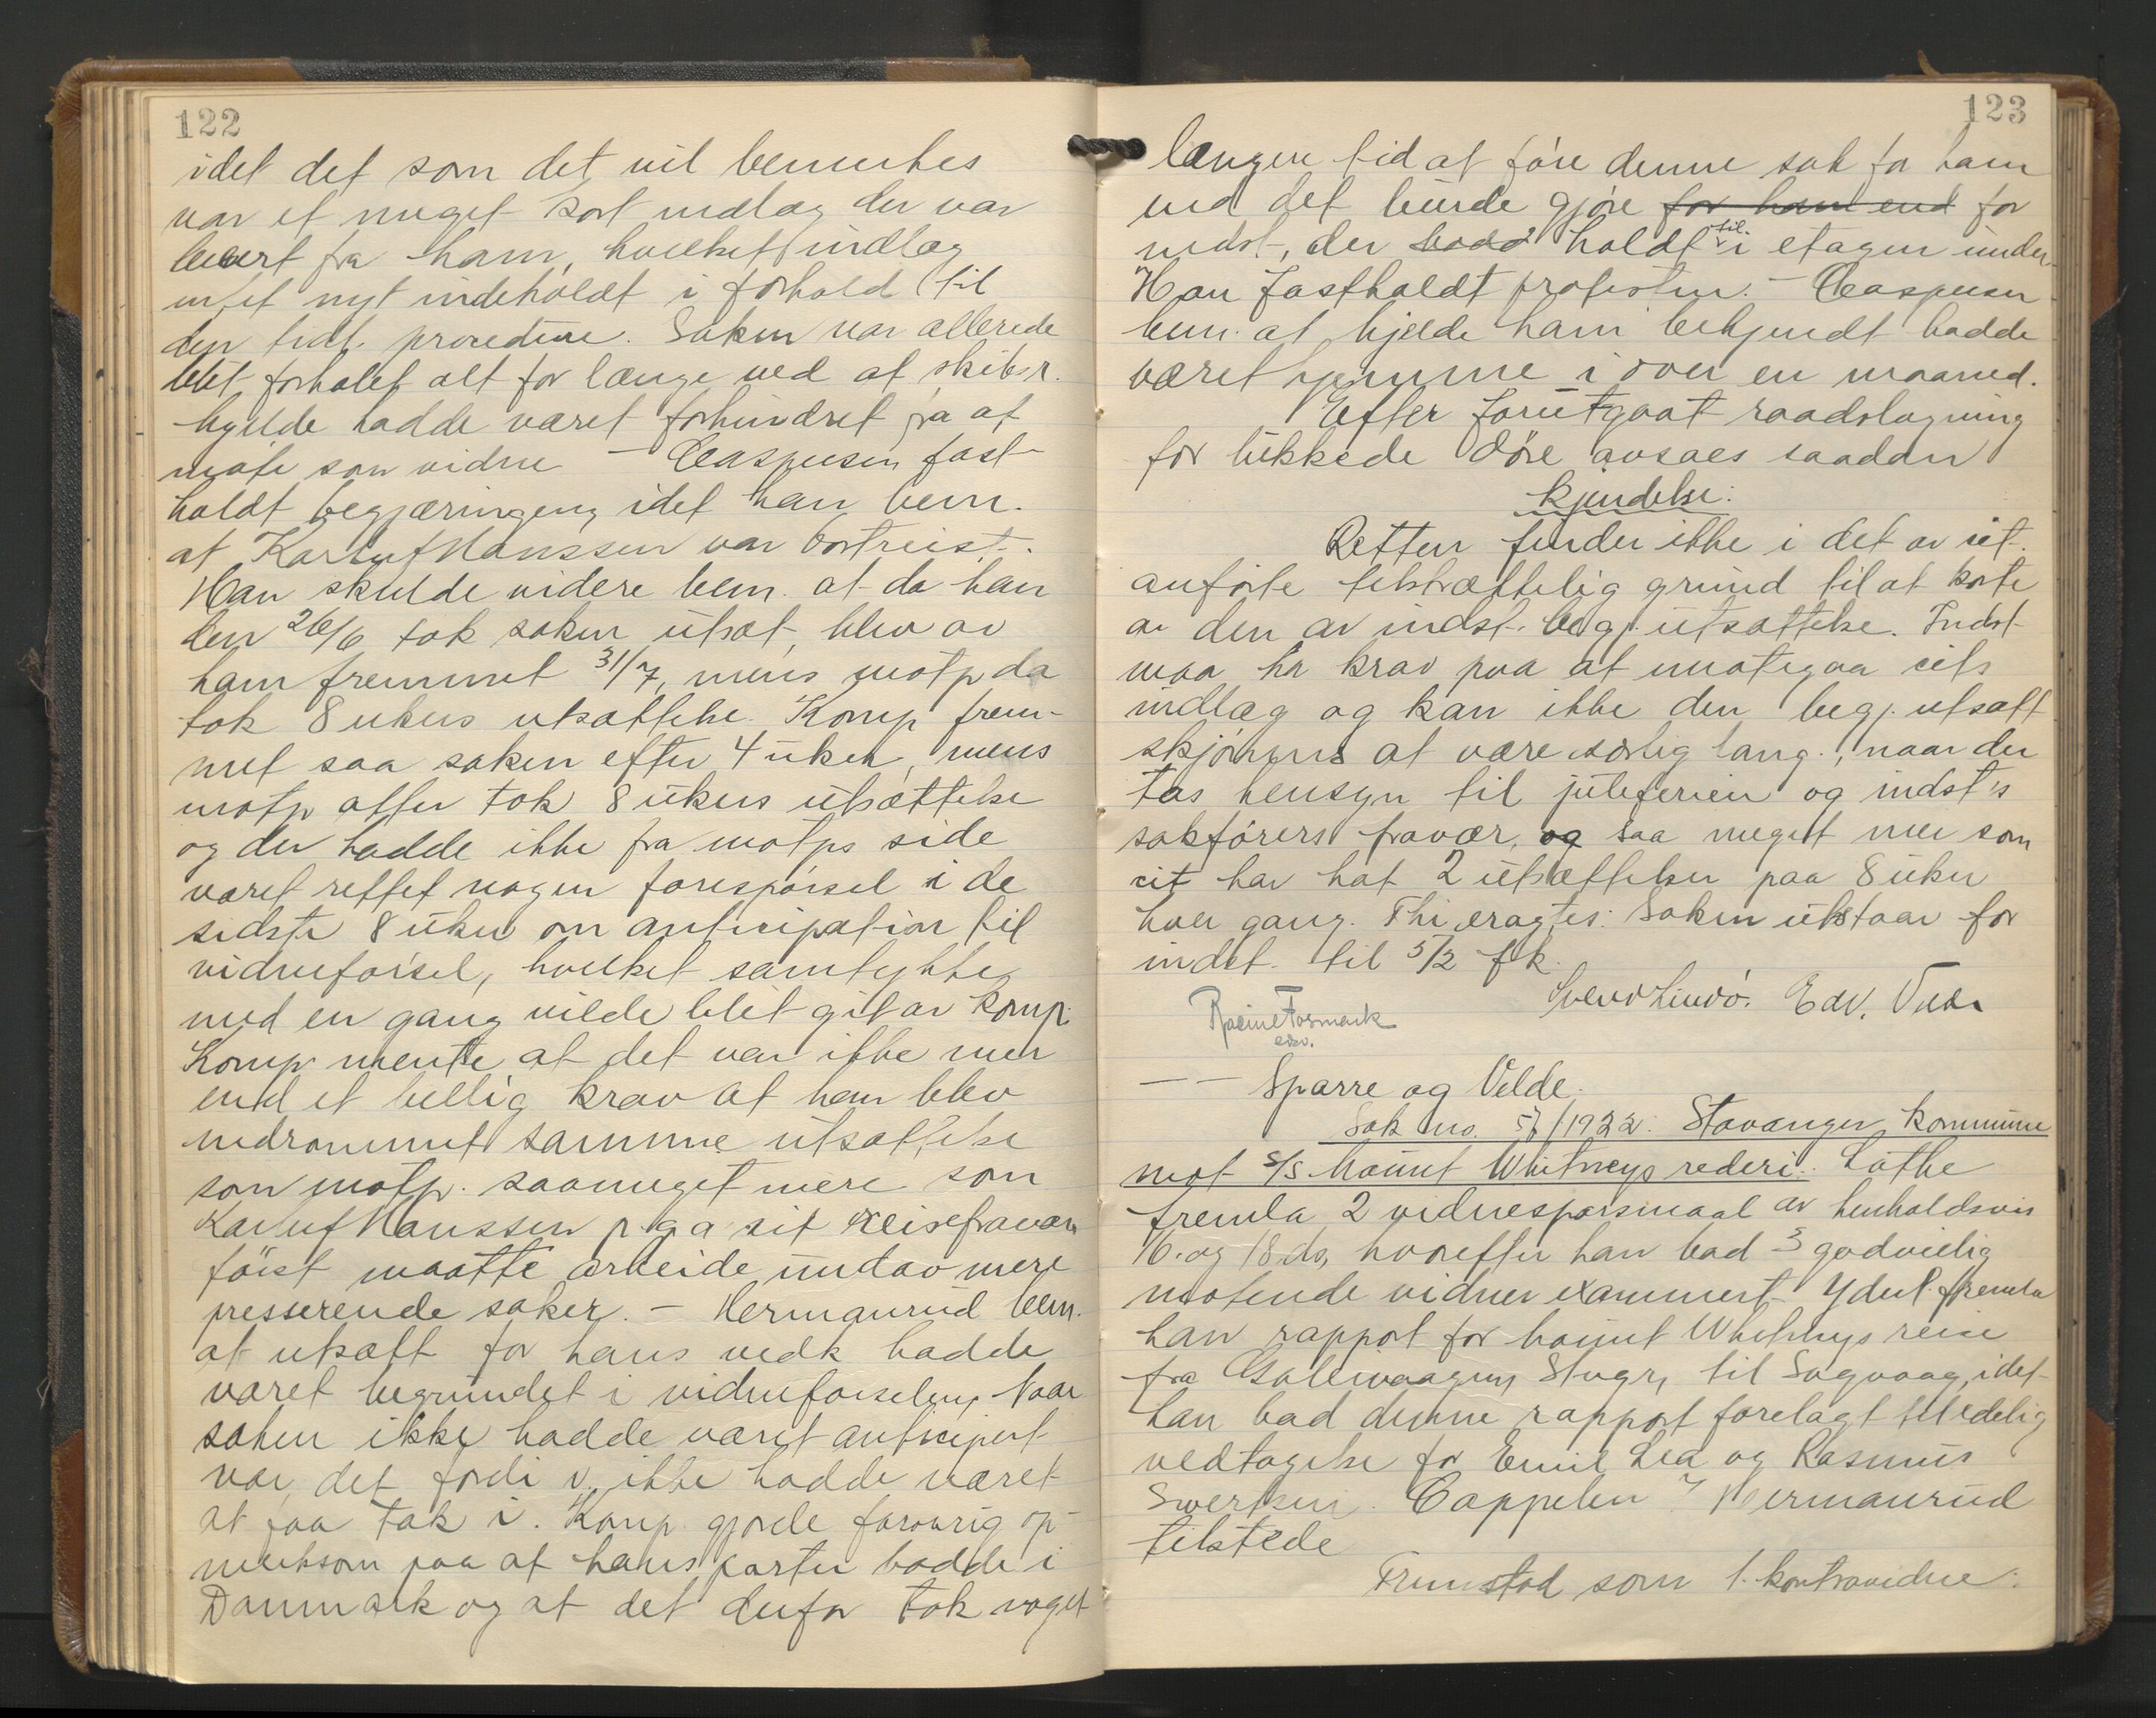 122
idet det som det vil bemerkes
var et meget kort indlæg der var
levert fra ham, hvilket indlæg
intet nyt indeholdt i forhold til
den tidl. procedure. Saken var allerede
blit forhalet alt for længe ved at skibsr.
hadde været forhindret fra at
møte som vidne — Caspersen fast-
holdt begjæringen, idet han bem.
at Karluf Hanssen var bortreist.
Han skulde videre bem. at da han
den 26/6 tok saken utsat, blev av
ham fremmet 31/7, mens motp da
tok 8 ukers utsættelse. Komp frem-
met saa saken efter 4 uker, mens
motp atter tok 8 ukers utsættelse
og der hadde ikke fra motps side
været rettet nogen forespørsel i de
sidste 8 uker om anticipation til
vidneførsel, hvilket samtykke
med en gang vilde blit git av komp.
Komp mente at det var ikke mer
end et billig krav at han blev
indrømmet samme utsættelse
som motp. saameget mere som
Karluf Hanssen p.g.a sit reisefravær
først maatte arbeide undav mere
presserende saker. — Hermanrud bem.
at utsætt for hans vedk hadde
været begrundet i vidneførselen. Naar
saken ikke hadde været anticipert
var det fordi v. ikke hadde været
at faa tak i. Komp. gjorde forøvrig op-
merksom paa at hans parter bodde i
Danmark og at det derfor tok noget
123
længere tid at føre denne sak for ham
end det burde gjøre for ham end for
indst, der bodde holdt til i etagen under.
Han fastholdt protesten. — Caspersen
bem. at ham bekjendt hadde
været hjemme i over en maaned.
Efter forutgaat raadslagning
for lukkede døre avsaes saadan
kjendelse:
Retten finder ikke i det av cit.
anførte tilstrækkelig grund til at korte
av den av indst. begj. utsættelse. Indst
maa ha krav paa at imøtegaa cits
indlæg og kan ikke den begj. utsætt
skjønnes at være særlig lang, naar der
tas hensyn til juleferien og indst's
sakførers fravær, og saa meget mer som
cit har hat 2 utsættelser paa 8 uker
hver gang. Thi eragtes: Saken utstaar for
indst. til 5/2 f k.
Svend Lindø. Edv.
Formark
— — Sparre og Velde.
Sak no. 57/1922. Stavanger kommune
mot S/S Mount Whitneys rederi. Løthe
fremla 2 vidnespørsmaal av henholdsvis
16. og 18 ds, hvorefter han bad 3 godvillig
møtende vidner examinert. Yderl. fremla
han rapport for Mount Whitneys reise
fra Galeivaagen, Stvgr, til Sagvaag, idet
han bad denne rapport forelagt til edelig
vedtagelse for Emil Lea og Rasmus
Swertsen. Cappelen & Hermanrud
tilstede
som 1. kontravidne: